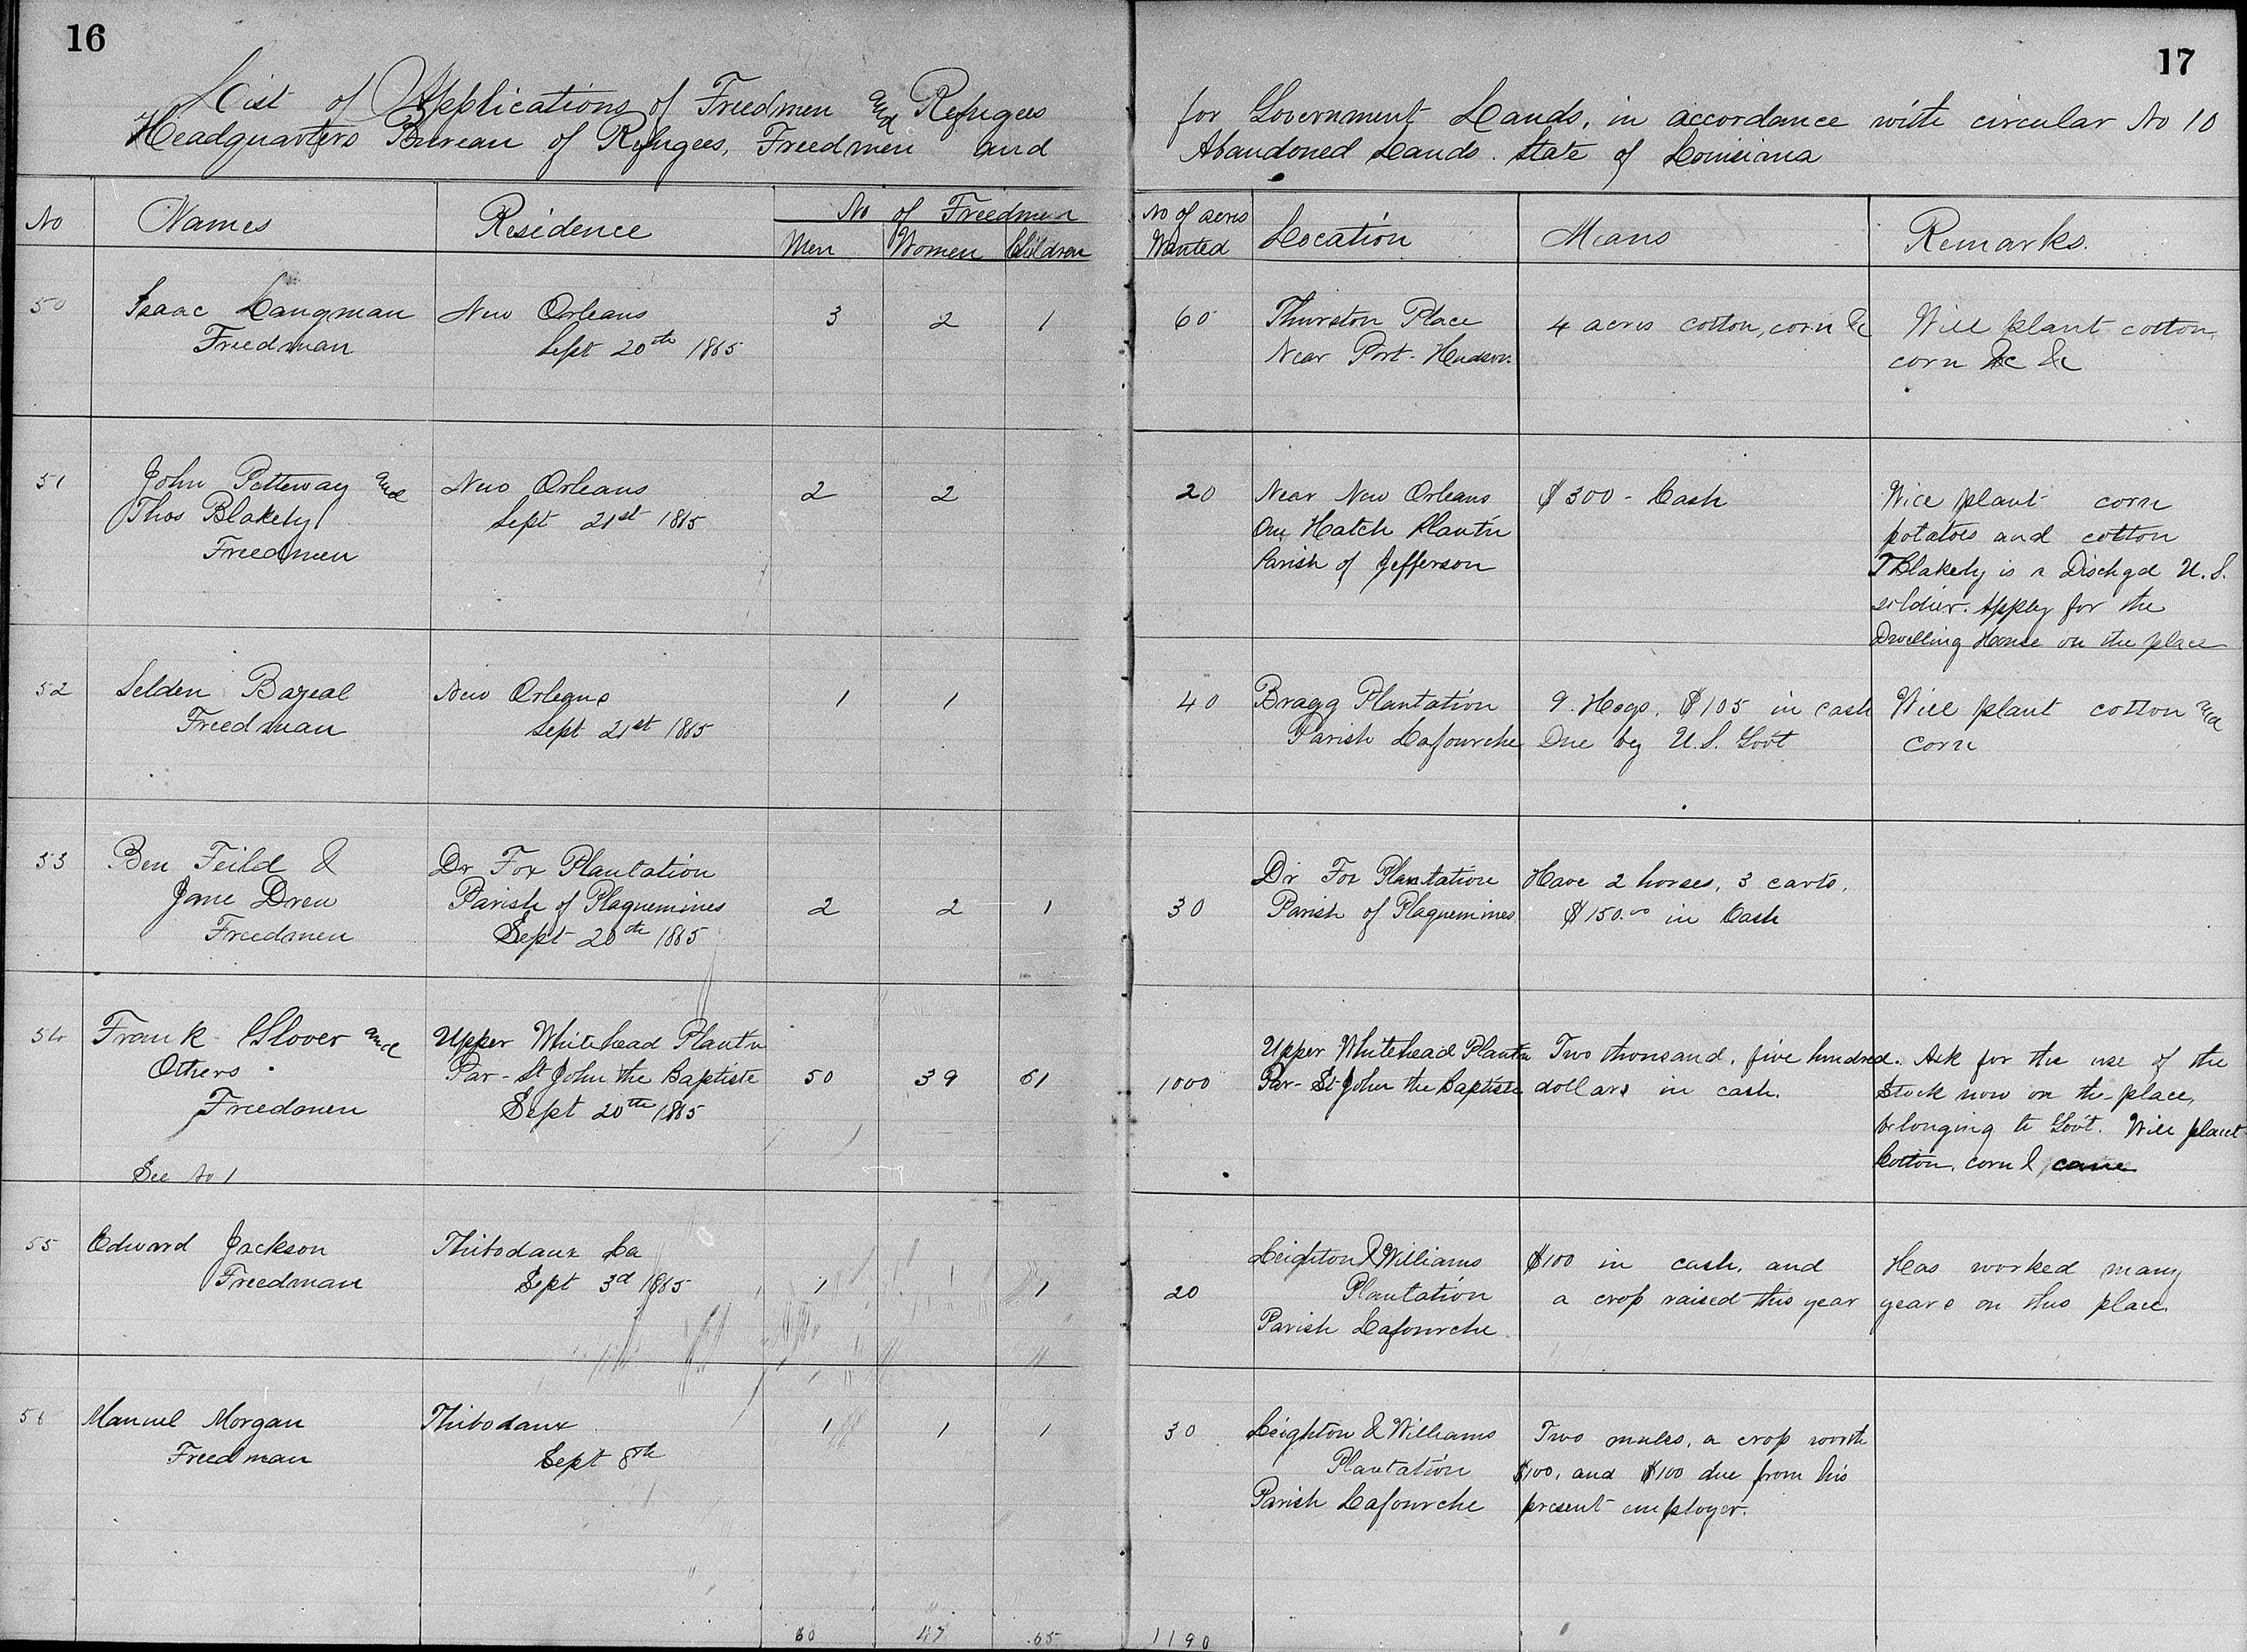 16
List of Applications of Freedmen and Refugees
Headquarters Bureau of Refugees, Freedmen and
No
Names
Residence
No of Freedmen
Men
Women
Children
50
Isaac Langman
Freedman
New Orleans
Sept 20th 1865
3
2
1
51
John Petteway and
Thos Blakely
Freedmen
New Orleans
Sept 21st 1865
2
2
52
Selden Bazeal
Freedman
New Orleans
Sept 21st 1865
1
1
53
Ben Feild &
Jane Drew
Freedmen
Dr Fox Plantation
Parish of Plaquemines
Sept 20th 1865
2
2
1
54
Frank Glover and
Others
Freedmen
See No 1
Upper Whitehead Plantn
Par - St John the Baptiste
Sept 20th 1865
50
39
61
55
Edward Jackson
Freedman
Thibodaux La
Sept 3d 1865
1
1
1
56
Manuel Morgan
Freedman
Thibodaux
Sept 8th
1
1
1
60
47
65
17
for Government Lands, in accordance with circular No 10
Abandoned Lands. State of Louisiana
No of acres
Wanted
Location
Means
Remarks.
60
Thurston Place
Near Port-Hudson.
4 acres cotton, corn &c
Will plant cotton,
corn &c &c
20
Near New Orleans
On Hatch Plantn
Parish of Jefferson
$300 - Cash
Will plant corn
potatoes and cotton
T Blakely is a Dischgd U.S.
soldier. Apply for the
Dwelling House on the place
40
Bragg Plantation
Parish Lafourche
9. Hogs, $105 in cash
Due by U.S. Govt
Will plant cotton and
corn
30
Dr Fox Plantation
Parish of Plaquemines
Have 2 horses, 3 carts,
$150.00 in Cash
1000
Upper Whitehead Plantn
Par - St John the Baptiste
Two thousand, five hundred.
dollars in cash.
Ask for the use of the
Stock now on the place,
belonging to Govt. Will plant
Cotton, corn & cane
20
Leighton & Williams
Plantation
Parish Lafourche
$100 in cash, and
a crop raised this year
Has worked many
years on this place.
30
Leighton & Williams
Plantation
Parish Lafourche
Two mules, a crop worth
$100, and $100 due from his
present employer.
1190